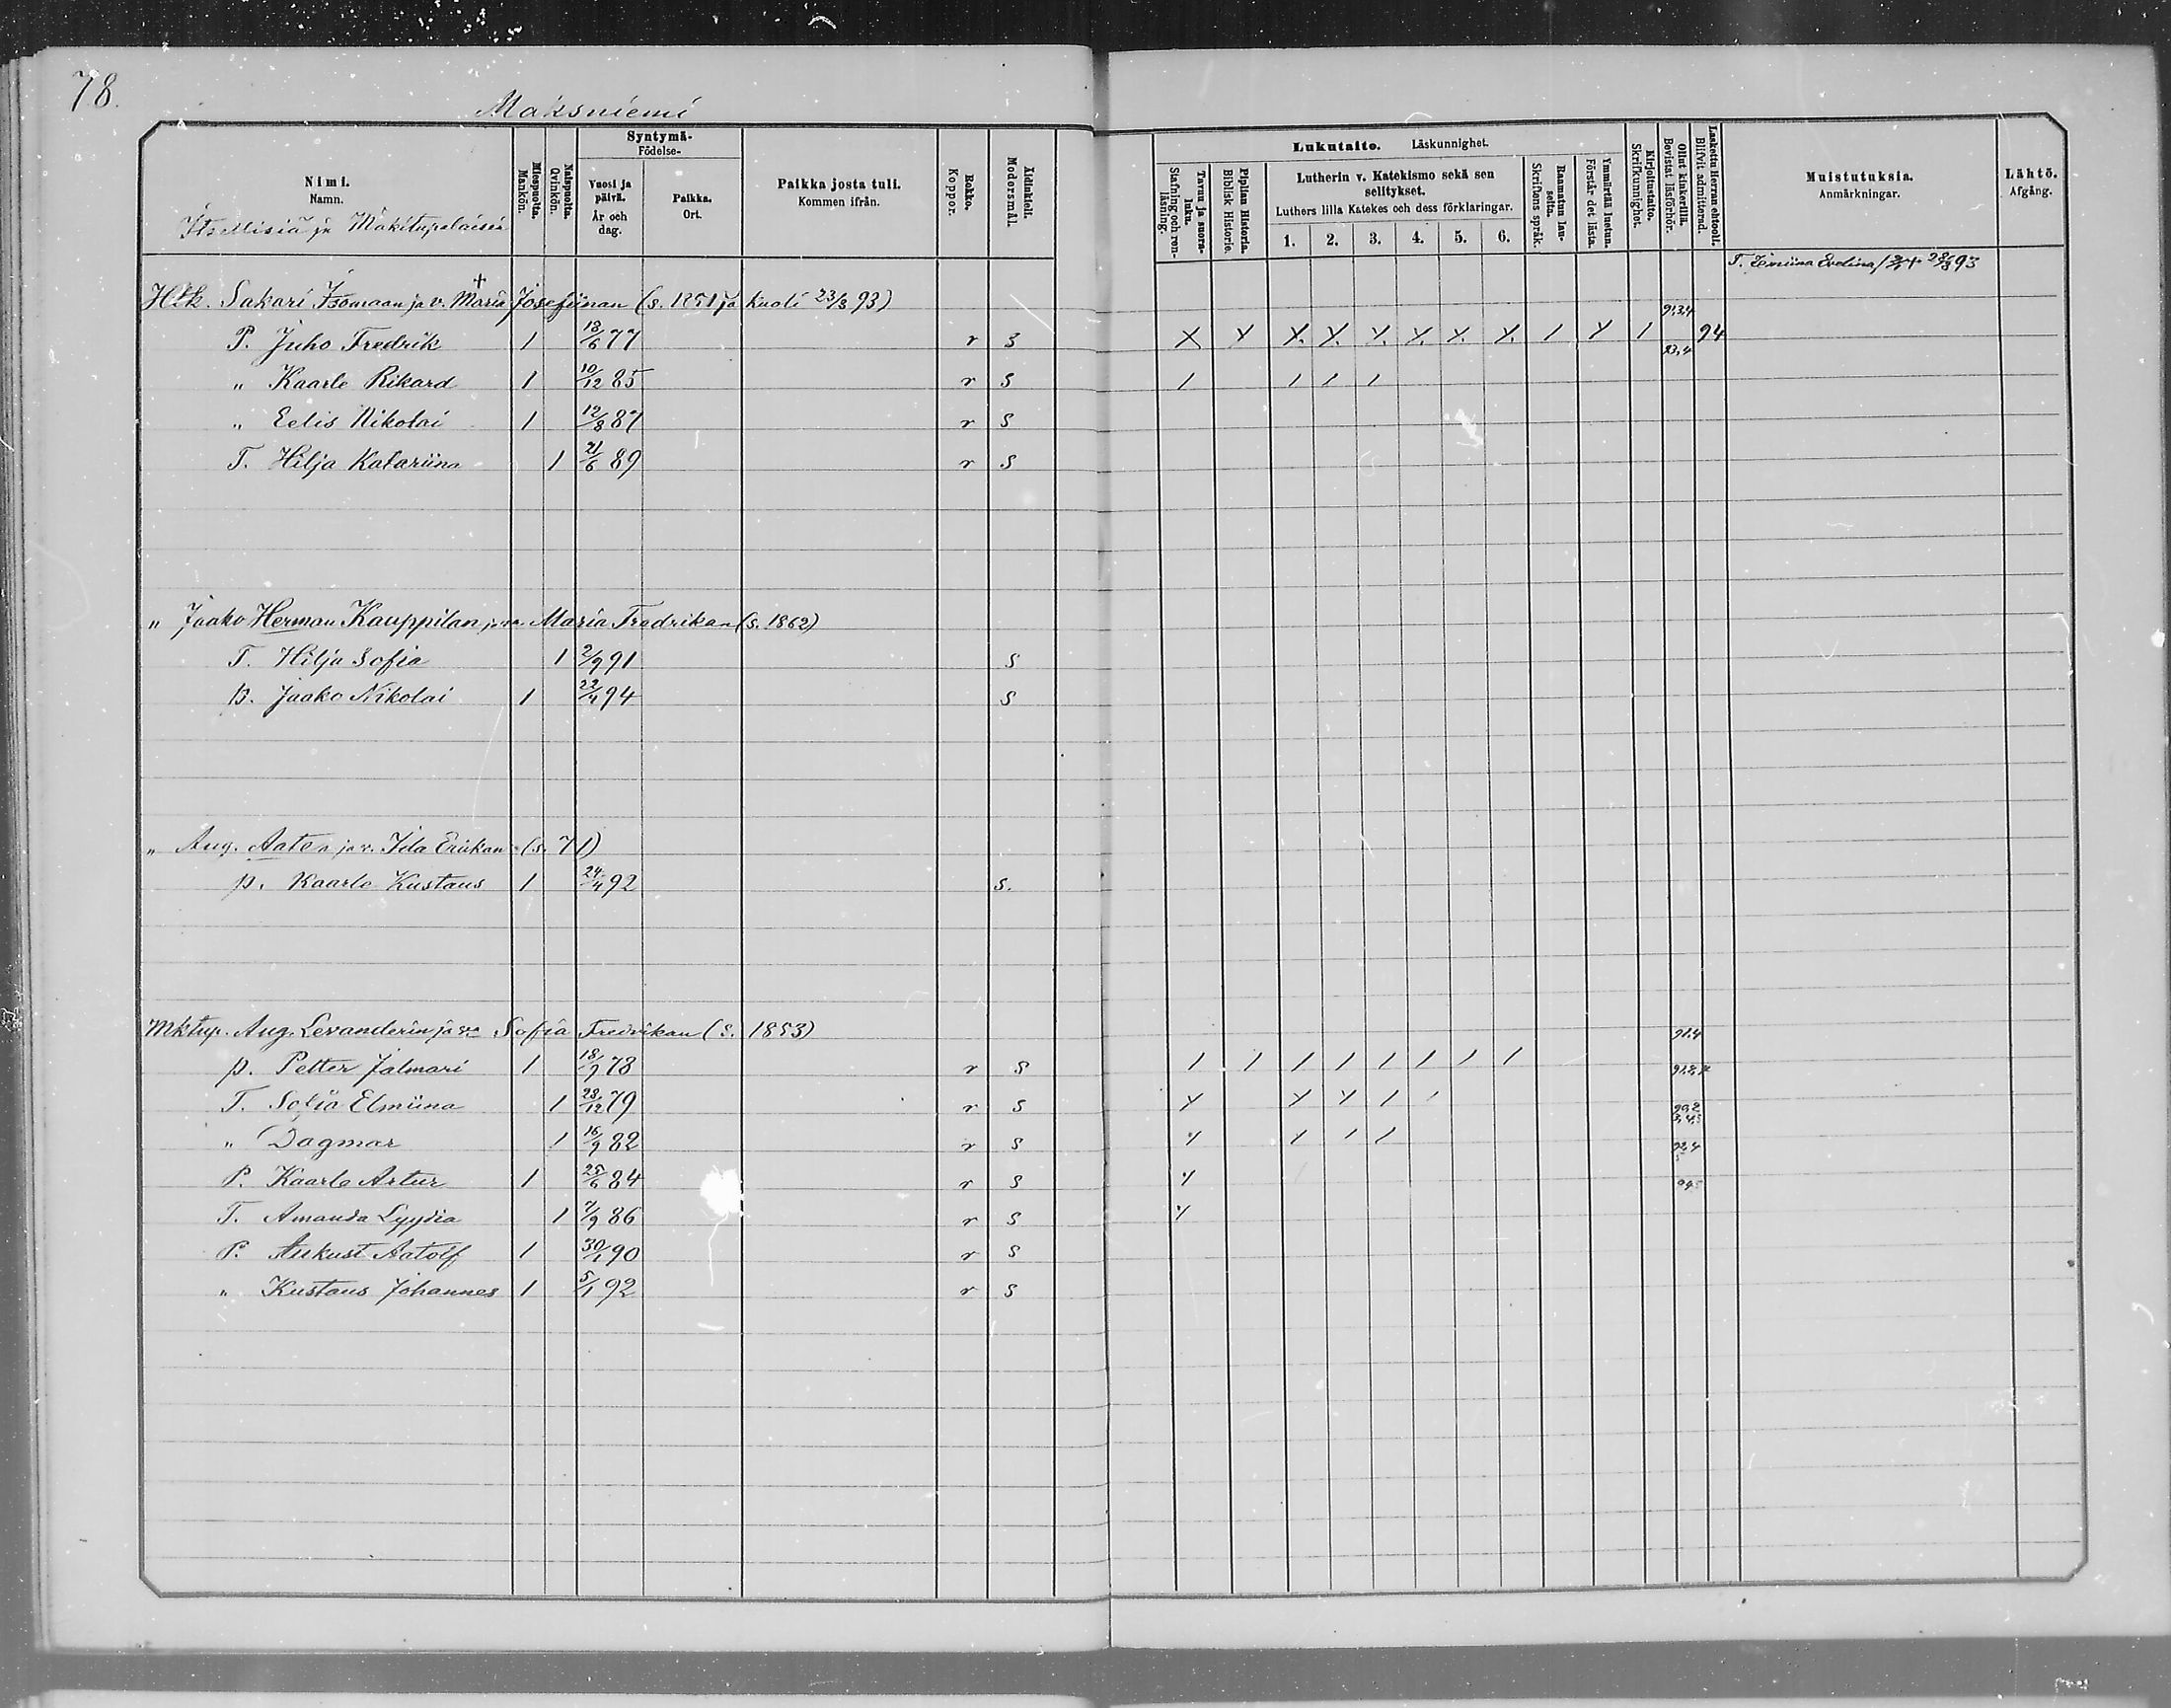 78.
Maksniemi
Nimi.
Namn.
Itsellisiä ja Mäkitupalaisia
Miespuolta.
Mankön.
Naispuolta.
Qvinkön.
Syntymä-
Födelse-
Vuosi ja päivä.
År och dag.
Paikka.
Ort.
Paikka josta tuli.
Kommen ifrån.
Rokko.
Koppor.
Äidinkieli.
Modersmål.
Lukutaito. Läskunnighet.
Tavu ja suora-luku.
Stafning och ren-läsning.
Piplian Historia.
Biblisk Historie.
Lutherin v. Katekismo sekä sen selitykset.
Luthers lilla Katekes och dess förklaringar.
1. 2. 3. 4. 5. 6.
Raamatun lau-seita.
Skriftens språk.
Ymmärtää luetun.
Förstår det lästa.
Kirjoitustaito.
Skrifkunnighet.
Ollut kinkerillä.
Bevistat läsförhör.
Laskettu Herran ehtool.
Blifvit admitterad.
Muistutuksia.
Anmärkningar.
Lähtö.
Afgång.
Htk. Sakari Isomaan ja v. Maria † Josefiinan (s. 1851 ja kuoli 23/8 93)
P. Juho Fredrik 1 18/6 77 r s X Y X. X. X. X. X. X. 1 Y 1 94
" Kaarle Rikard 1 10/12 85 r s 1 1 1 1
" Eelis Nikolai 1 12/8 87 r s
T. Hilja Katariina 1 21/6 89 r s
" Jaako Herman Kauppilan ja v. Maria Fredrikan (s. 1862)
T. Hilja Sofia 1 2/9 91 s
p. Jaako Nikolai 1 22/4 94 s
" Aug. Aaten ja v. Ida Erikan (s. 71)
p. Kaarlo Kustaus 1 24/4 92 s.
Mktup. Aug. Levanderin ja va Sofia Fredrikan (s. 1853) 91.4
p. Petter Jalmari 1 18/9 78 r s 1 1 1 1 1 1 1 1
T. Sofia Elmiina 1 23/12 79 r s Y Y Y 1 1
" Dagmar 1 16/9 82 r s Y Y 1 1
P. Kaarlo Artur 1 25/6 84 r s Y
T. Amanda Lyydia 1 7/9 86 r s Y
P. Aukust Aatolf 1 30/1 90 r s
" Kustaus Johannes 1 5/1 92 r s